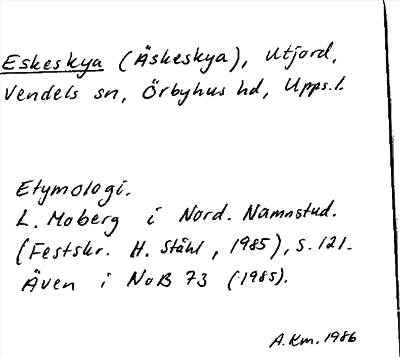 Eskeskya (Äskeskya), Utjord,
Vendels sn, Örbyhus hd, Upps.l.
Etymologi.
L. Moberg i Nord. Namnstud.
(Festskr. H. Ståhl, 1985), s. 121.
Även i NoB 73 (1985).
A.Km. 1986